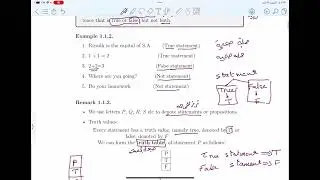 tence that is true or false but not both.
Example 1.1.2.
1. Riyadh is the capital of S.A (True statement)
2. 1 + 1 = 2 (True statement)
3. 2+2=3 (False statement)
4. Where are you going? (Not statement)
5. Do your homework (Not statement)
statement
True
T
False
F
Remark 1.1.3.
• We use letters P, Q, R, S etc to denotes statements or propositions.
• Truth values:
Every statement has a truth value, namely true, denoted by T or
false denoted by F
We can form the truth table of statement P as follows:
P
T
F
True statement ⇒ T
False statement ⇒ F